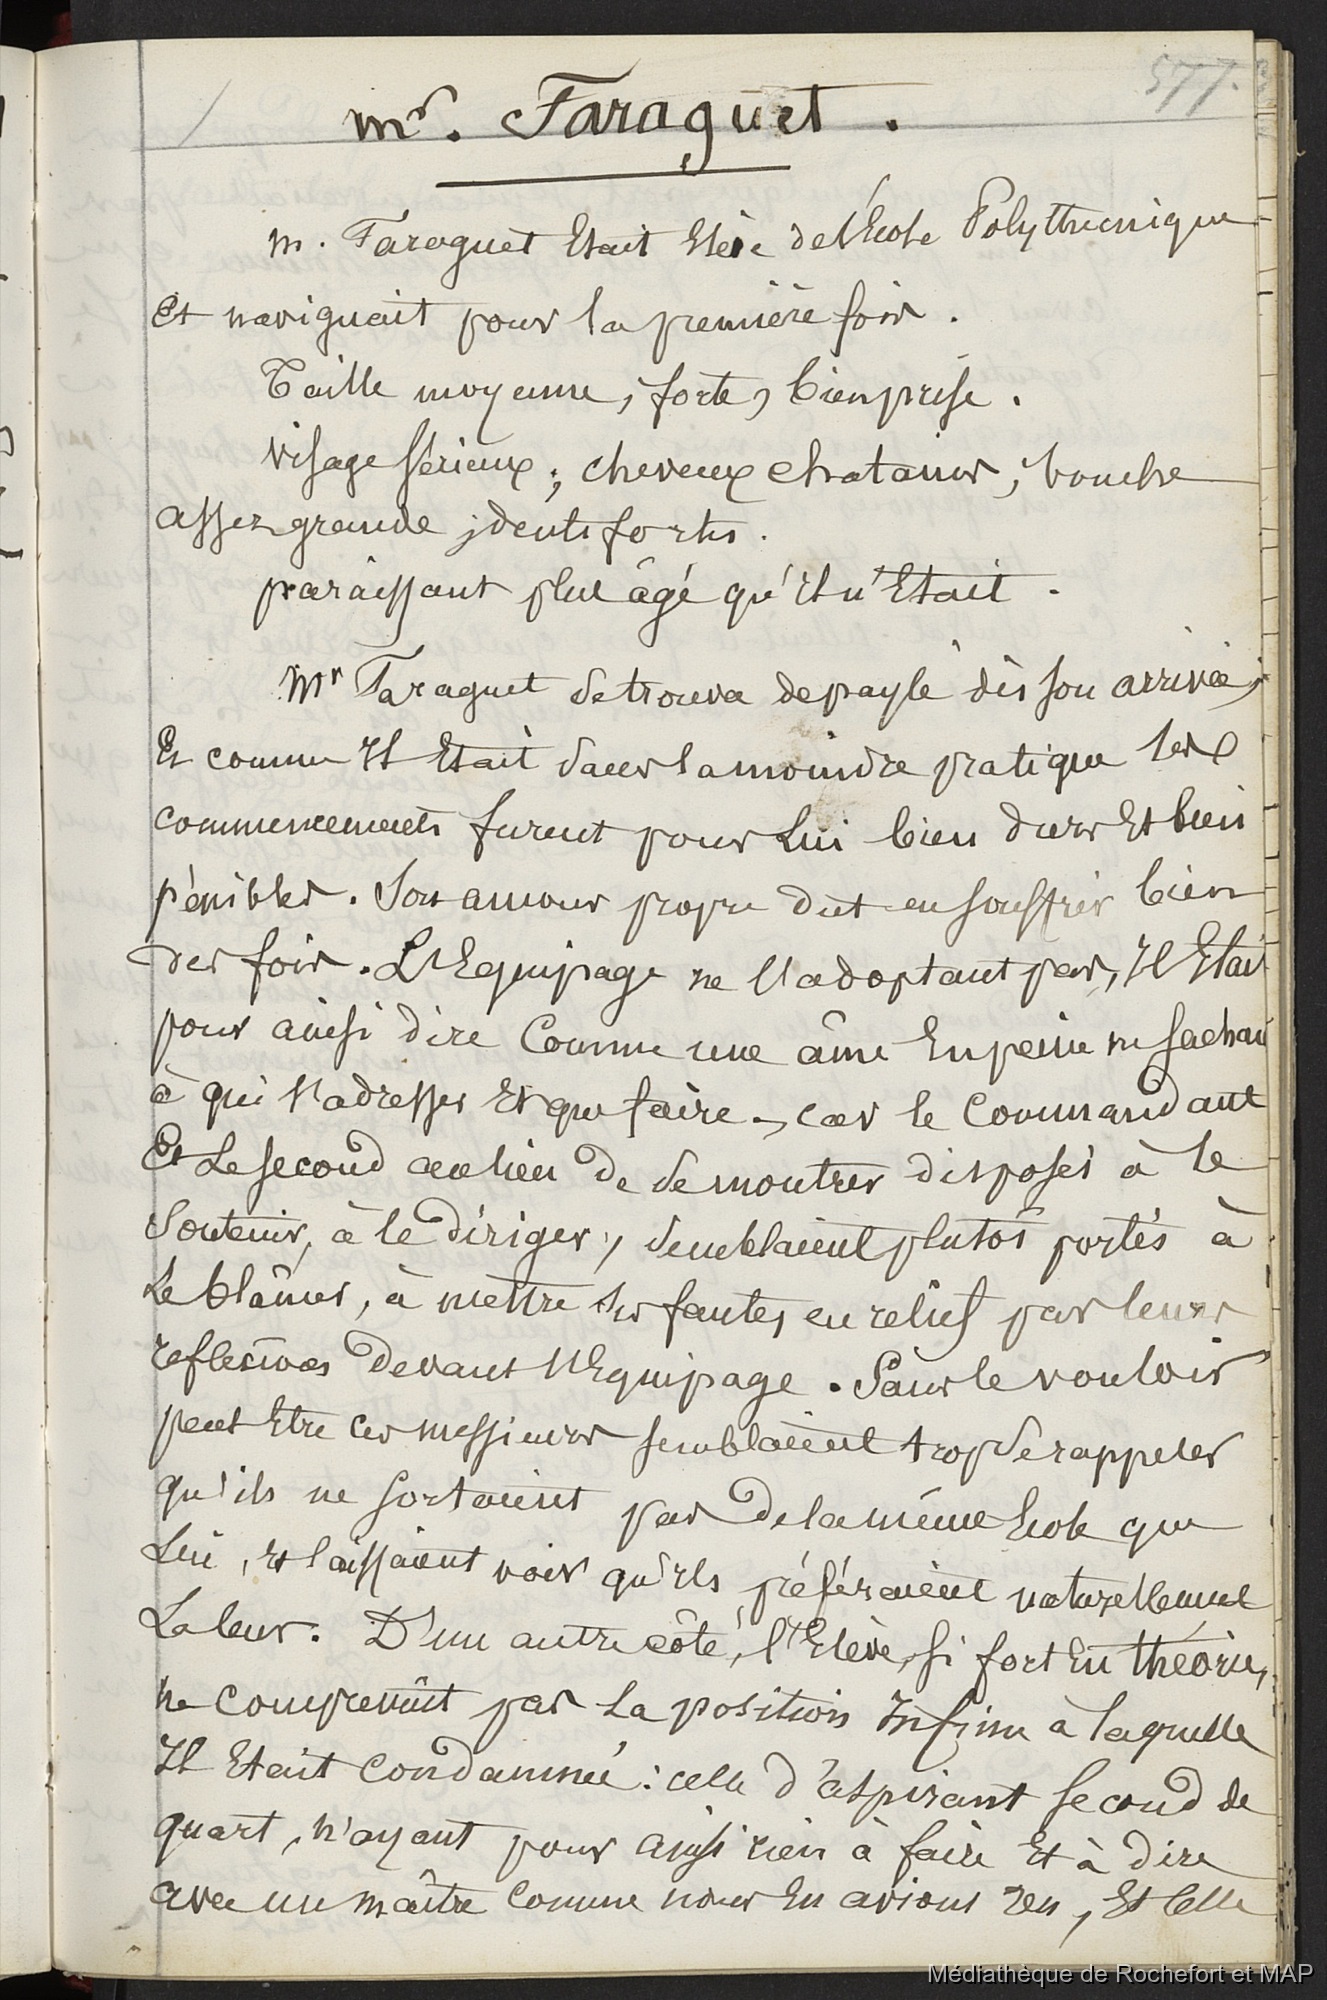 577.
Mr. Faraguet.
M. Faraguet Etait Elève de l'Ecole Polythecnique
Et naviguait pour la première fois.
Taille moyenne, forte, bien prise.
Visage sérieux; cheveux chatains, bouche
assez grande; dents fortes.
paraissant plus âgé qu'il n'Etait.
Mr Faraguet se trouva depaysé dès son arrivée,
Et comme Il Etait sans la moindre pratique les
commencements furent pour Lui bien durs Et bien
pénibles. Son amour propre dut en souffrir bien
des fois. L'Equipage ne l'adoptant pas, Il Etait
pour ainsi dire Comme une âme En peine ne sachant
à qui s'adresser Et que faire, car le Commandant
Et Le second au lieu de se montrer disposés à le
Soutenir, à le diriger, semblaient plutôt portés à
Le blâmer, à mettre ses fautes en relief par leurs
reflexions devant l'Equipage. Sans le vouloir
peut Etre ces messieurs semblaient trop se rappeler
qu'ils ne sortaient pas de la même Ecole que
Lui, Et laissaient voir qu'Ils préféraient naturellement
La leur. D'un autre côté, l'Elève, si fort En théorie,
ne comprenait pas La position Infime à laquelle
Il Etait condamné: celle d'aspirant second de
quart, n'ayant pour ainsi rien à faire Et à dire
avec un maître comme nous En avions Un, Et Celle
Médiathèque de Rochefort et MAP